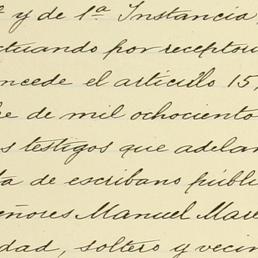 y de 1ª Instancia,
ctuando por receptor
ncede el articulo 15,
re de mil ochociento
s testigos que adelan
ta de escribano públi
eñores Manuel Mare
dad, soltero y vecin